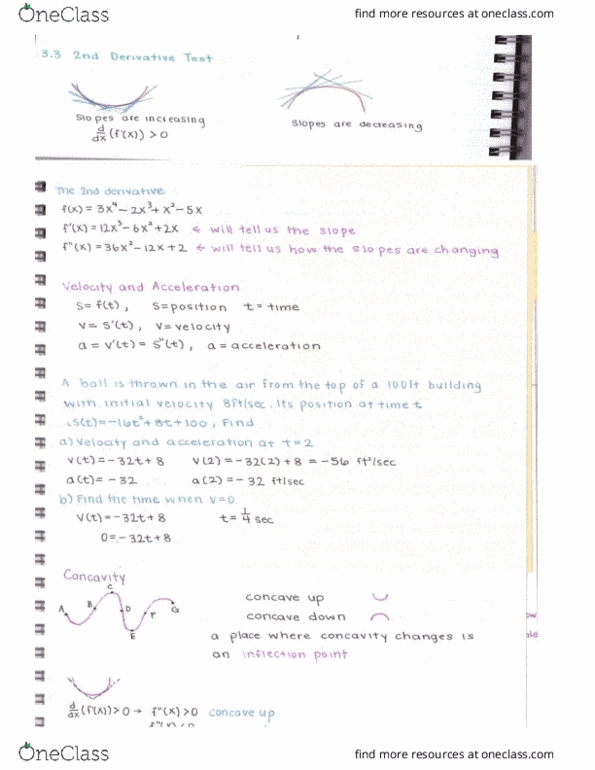 OneClass
find more resources at oneclass.com
3.3 2nd Derivative Test
Slopes are increasing
d/dx (f'(x)) > 0
Slopes are decreasing
The 2nd derivative
f(x) = 3x⁴ - 2x³ + x² - 5x
f'(x) = 12x³ - 6x² + 2x ← will tell us the slope
f"(x) = 36x² - 12x + 2 ← will tell us how the slopes are changing
Velocity and Acceleration
S = f(t), S = position t = time
V = S'(t), V = velocity
a = v'(t) = S"(t), a = acceleration
A ball is thrown in the air from the top of a 100ft building
with initial velocity 8ft/sec. Its position at time t
S(t) = -16t² + 8t + 100, Find
a) Velocity and acceleration at t = 2
V(t) = -32t + 8 V(2) = -32(2) + 8 = -56 ft²/sec
a(t) = -32 a(2) = -32 ft/sec
b) Find the time when V=0
V(t) = -32t + 8 t = 1/4 sec
0 = -32t + 8
Concavity
A B C D E F G
concave up
concave down
a place where concavity changes is
an inflection point
d/dx (f'(x)) > 0 → f"(x) > 0 concave up
OneClass
find more resources at oneclass.com